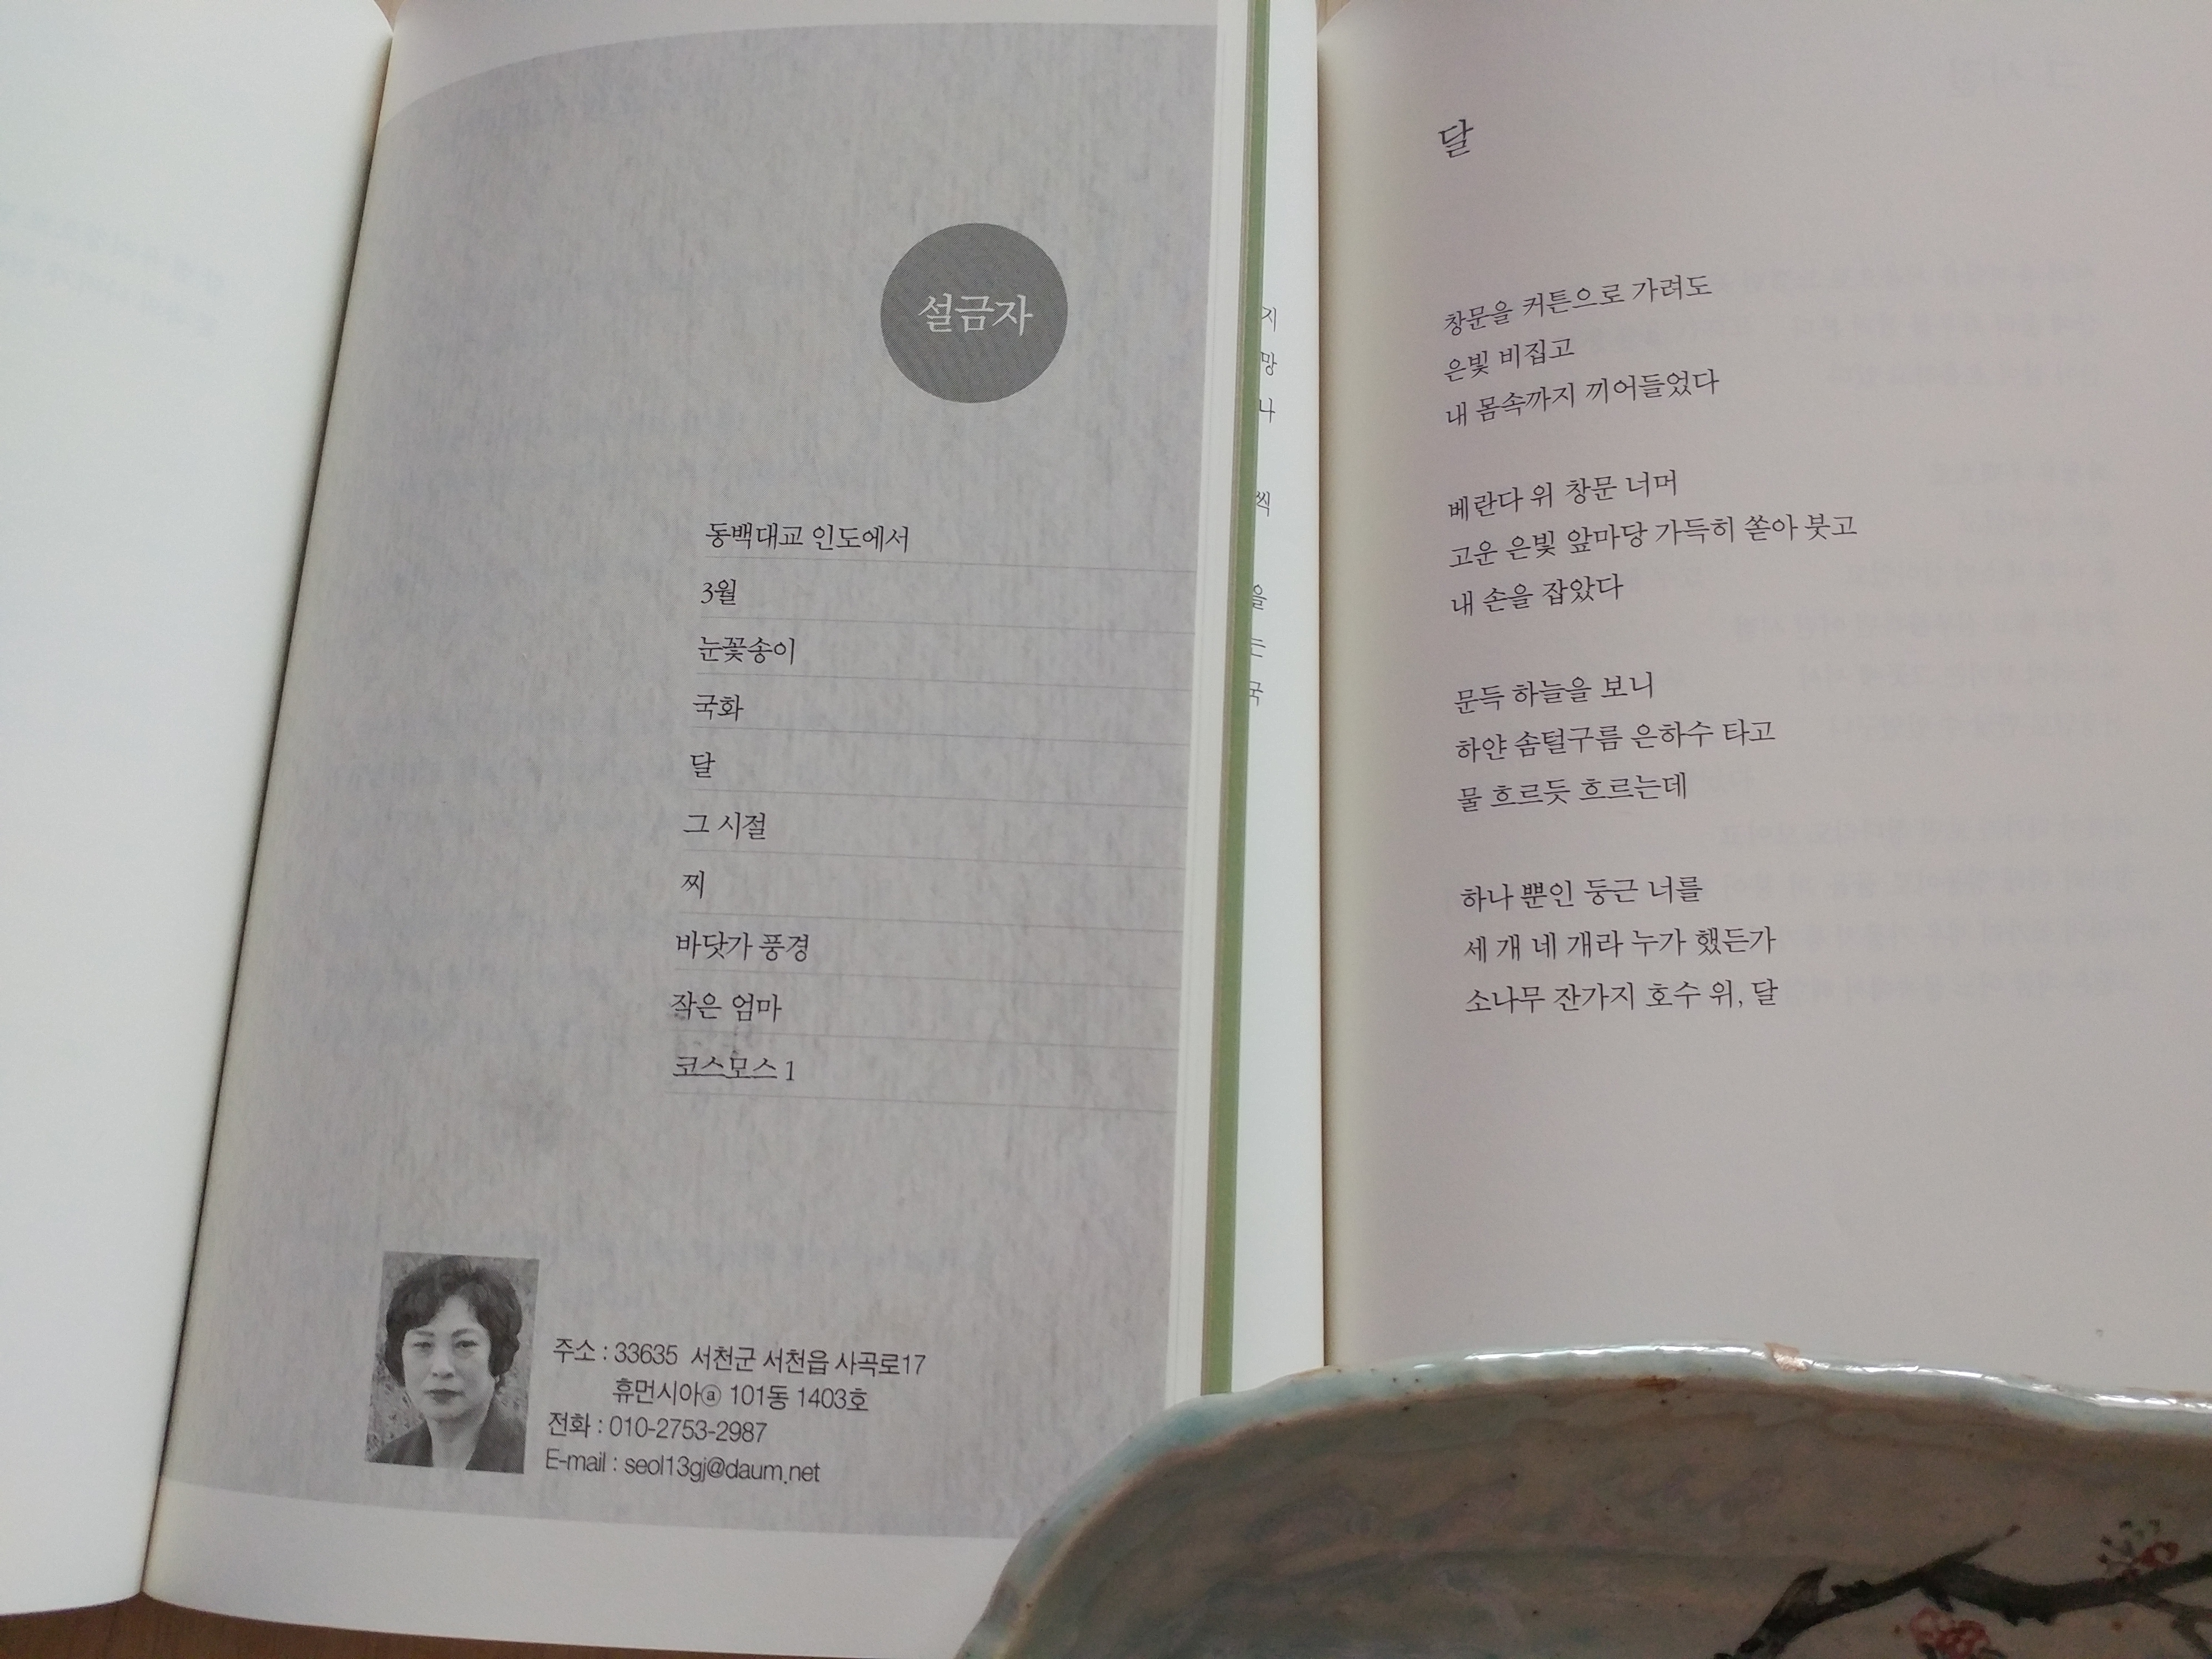 설금자
동백대교 인도에서
3월
눈꽃송이
국화
달
그 시절
찌
바닷가 풍경
작은 엄마
코스모스 1
주소 : 33635 서천군 서천읍 사곡로17
휴먼시아ⓐ 101동 1403호
전화 : 010-2753-2987
E-mail : seol13gj@daum.net
지
망
나
씩
을
는
국
달
창문을 커튼으로 가려도
은빛 비집고
내 몸속까지 끼어들었다
베란다 위 창문 너머
고운 은빛 앞마당 가득히 쏟아 붓고
내 손을 잡았다
문득 하늘을 보니
하얀 솜털구름 은하수 타고
물 흐르듯 흐르는데
하나 뿐인 둥근 너를
세 개 네 개라 누가 했든가
소나무 잔가지 호수 위, 달